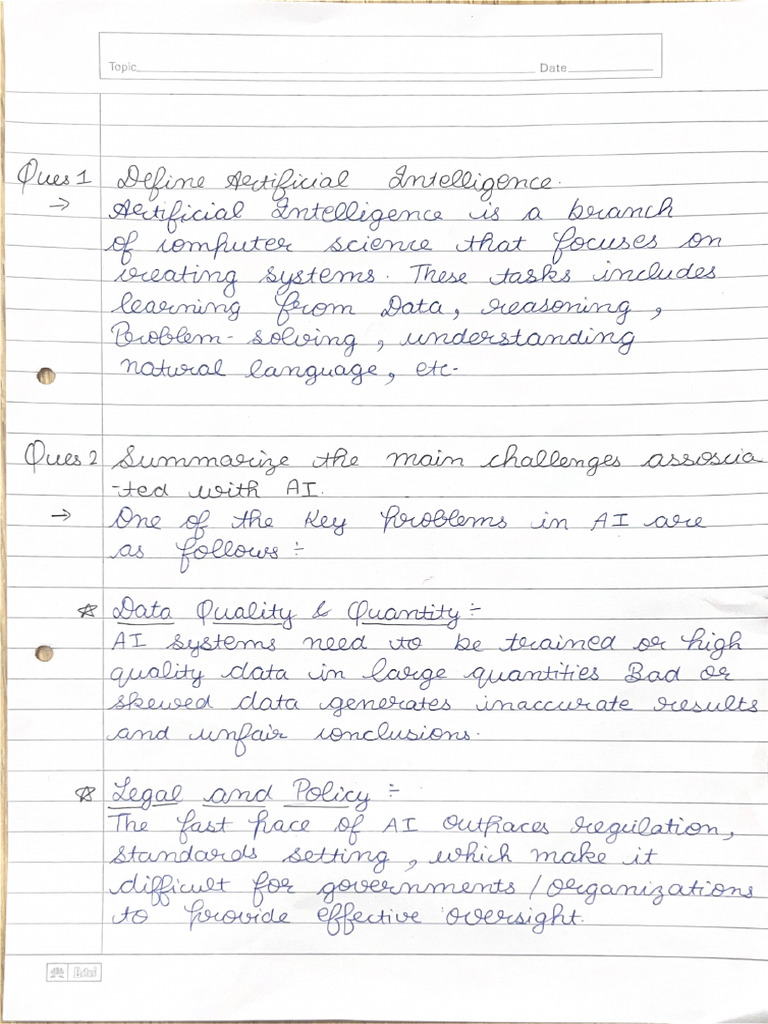 Topic Date
Ques 1 Define Artificial Intelligence.
→ Artificial Intelligence is a branch
of computer science that focuses on
creating systems. These tasks includes
learning from Data, reasoning,
Problem-solving, understanding
natural language, etc.
Ques 2 Summarize the main challenges assoscia
-ted with AI.
→ One of the Key problems in AI are
as follows :-
☆ Data Quality & Quantity :-
AI systems need to be trained or high
quality data in large quantities Bad or
skewed data generates inaccurate results
and unfair conclusions.
☆ Legal and Policy :-
The fast pace of AI outpaces regulation,
standards setting, which make it
difficult for governments/organizations
to provide effective oversight.